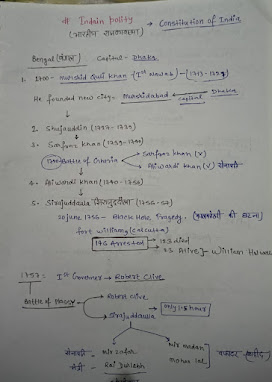 # Indain polity → Constitution of India
(भारतीय राजव्यवस्था)
Bengal (बंगाल) Capital- Dhaka
1. 1700- Murshid Quli khan (Ist Nawab)-(1717-1727)
He founded new city- Murshidabad ← Dhaka
capital
2. Shujauddin (1727-1739)
3. Sarfaraz khan (1739-1740)
Battle of Gheria
Sarfaraz khan (X)
Aliwardi khan (V)
4. Aliwardi khan (1740-1756)
5. Sirajuddaula (1756-57)
20 June 1756- Black Hole Tragedy.
fort william (Calcutta)
146 Arrested
123 died
23 Alive] - William
1757: Ist Governer → Robert Clive
Battle of Plassy
Robert Clive
Sirajuddaulla
only hour
Mir madan
Mohan lal
सेनापति - Mir Jafar
Rai Durlabh